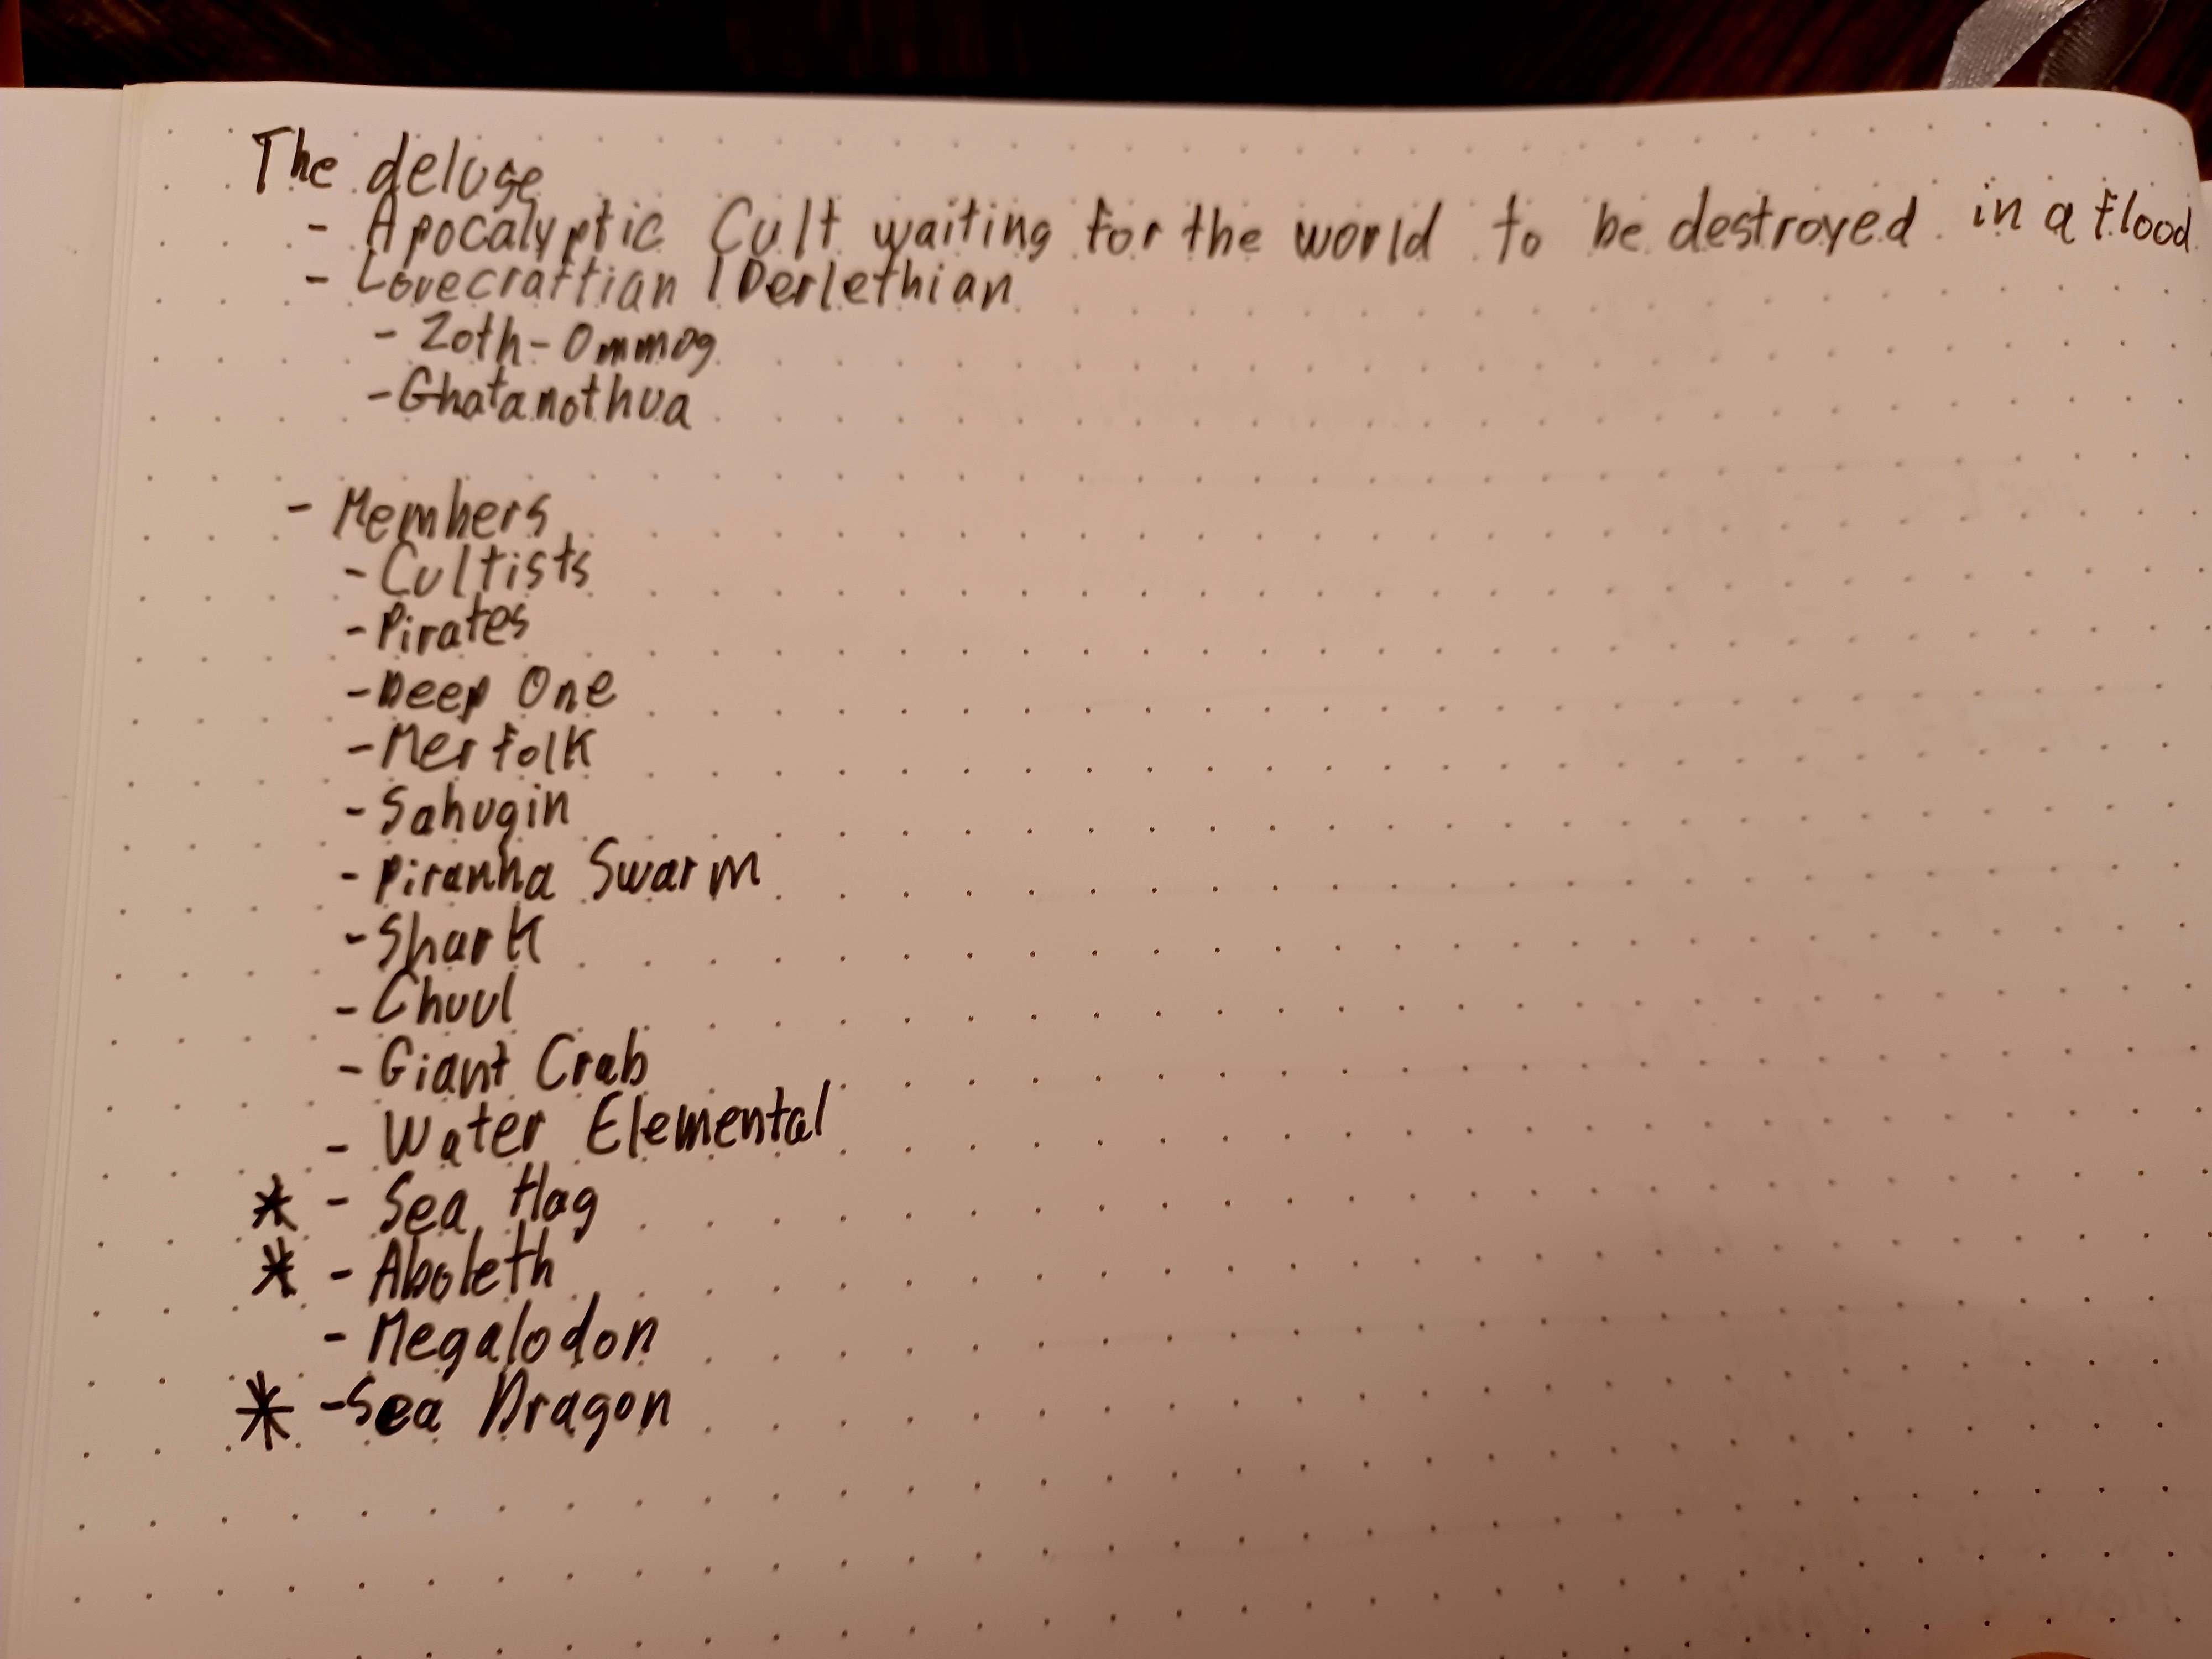 The deluge
- Apocalyptic Cult waiting for the world to be destroyed in a flood
- Lovecraftian / Derlethian
- Zoth-Ommog
- Ghatanothua
- Members
- Cultists
- Pirates
- Deep One
- Merfolk
- Sahugin
- Piranha Swarm
- Shark
- Chuul
- Giant Crab
- Water Elemental
* - Sea Hag
* - Aboleth
- Megalodon
* - Sea Dragon